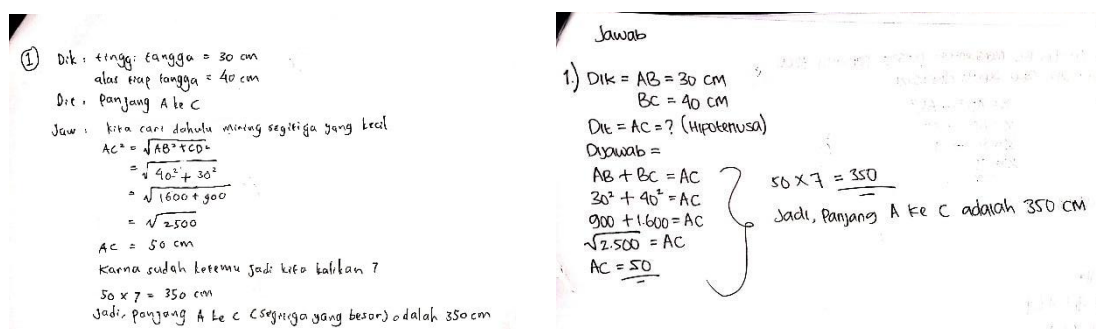 1 Dik : tinggi tangga = 30 cm
alas tiap tangga = 40 cm
Dit : Panjang A ke C
Jaw : kita cari dahulu miring segitiga yang kecil
AC² = √AB²+CD²
= √40²+30²
= √1600+900
= √2500
AC = 50 cm
Karna sudah ketemu jadi kita kalikan 7
50 x 7 = 350 cm
Jadi, panjang A ke C (segitiga yang besar) adalah 350 cm
Jawab
1.) DIK = AB = 30 CM
BC = 40 CM
Dit = AC = ? (Hipotenusa)
Dijawab =
AB + BC = AC
30² + 40² = AC
900 + 1.600 = AC
√2.500 = AC
AC = 50
50 x 7 = 350
Jadi, Panjang A ke C adalah 350 CM